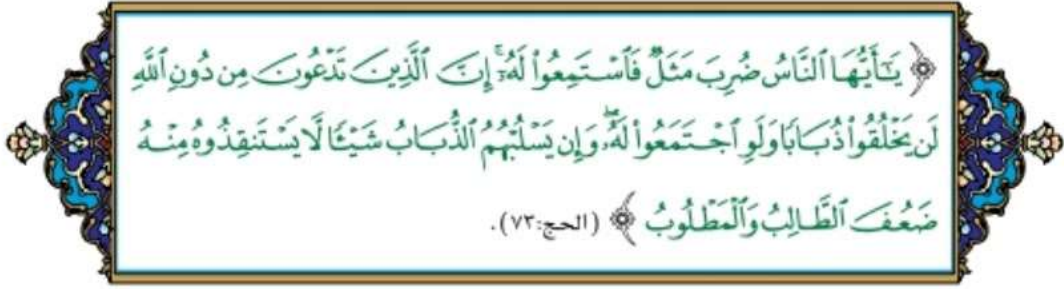 ﴿ يَـٰٓأَيُّهَا ٱلنَّاسُ ضُرِبَ مَثَلٌ فَٱسْتَمِعُوا۟ لَهُۥٓ ۚ إِنَّ ٱلَّذِينَ تَدْعُونَ مِن دُونِ ٱللَّهِ
لَن يَخْلُقُوا۟ ذُبَابًا وَلَوِ ٱجْتَمَعُوا۟ لَهُۥ ۖ وَإِن يَسْلُبْهُمُ ٱلذُّبَابُ شَيْـًٔا لَّا يَسْتَنقِذُوهُ مِنْهُ
ضَعُفَ ٱلطَّالِبُ وَٱلْمَطْلُوبُ ﴾ (الحج:٧٣).